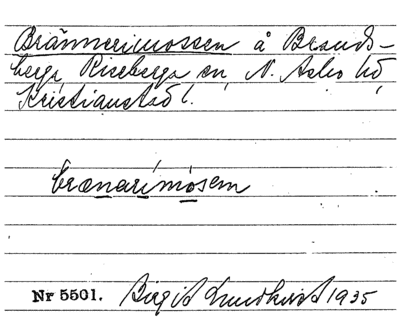 Brännerimossen å Brands-
berga, Riseberga sn, N. Åsbo hd,
Kristianstad l.
brænarimosem
Nr 5501. Birgit Lundkvist 1935